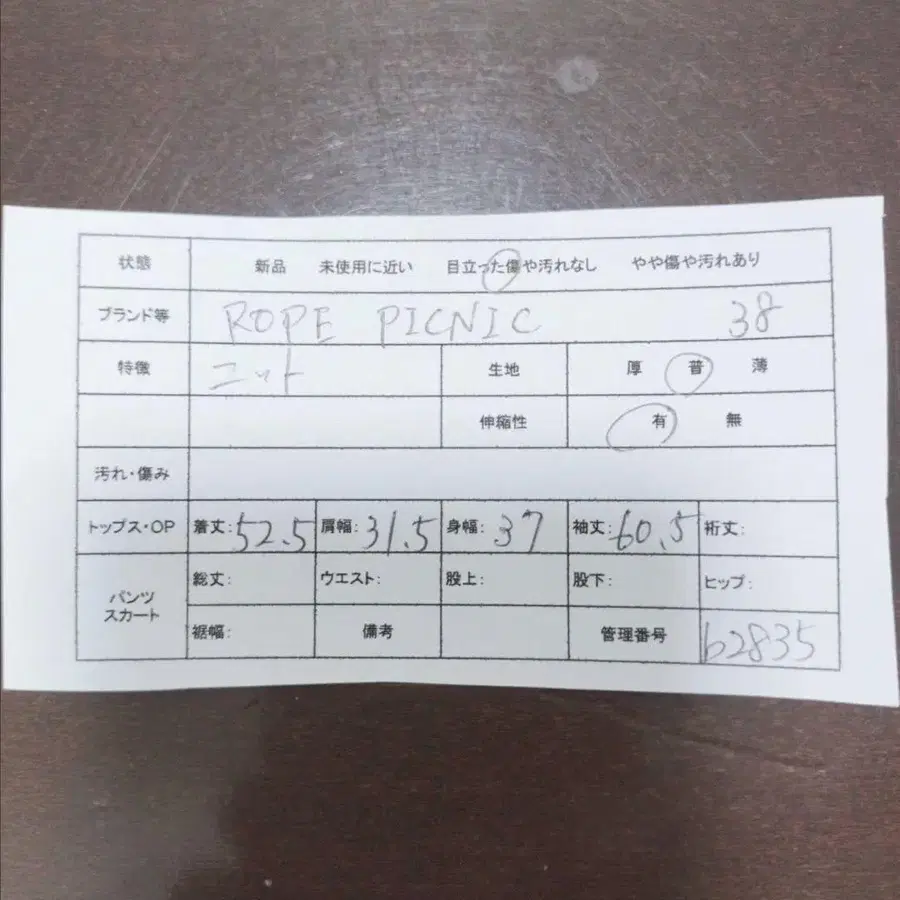 状態 新品 未使用に近い 目立った傷や汚れなし やや傷や汚れあり
ブランド等 ROPE PICNIC 38
特徴 ニット 生地 厚 普 薄
伸縮性 有 無
汚れ・傷み
トップス・OP 着丈:52.5 肩幅:31.5 身幅:37 袖丈:60.5 裄丈:
パンツ スカート 総丈: ウエスト: 股上: 股下: ヒップ:
裾幅: 備考 管理番号 62835